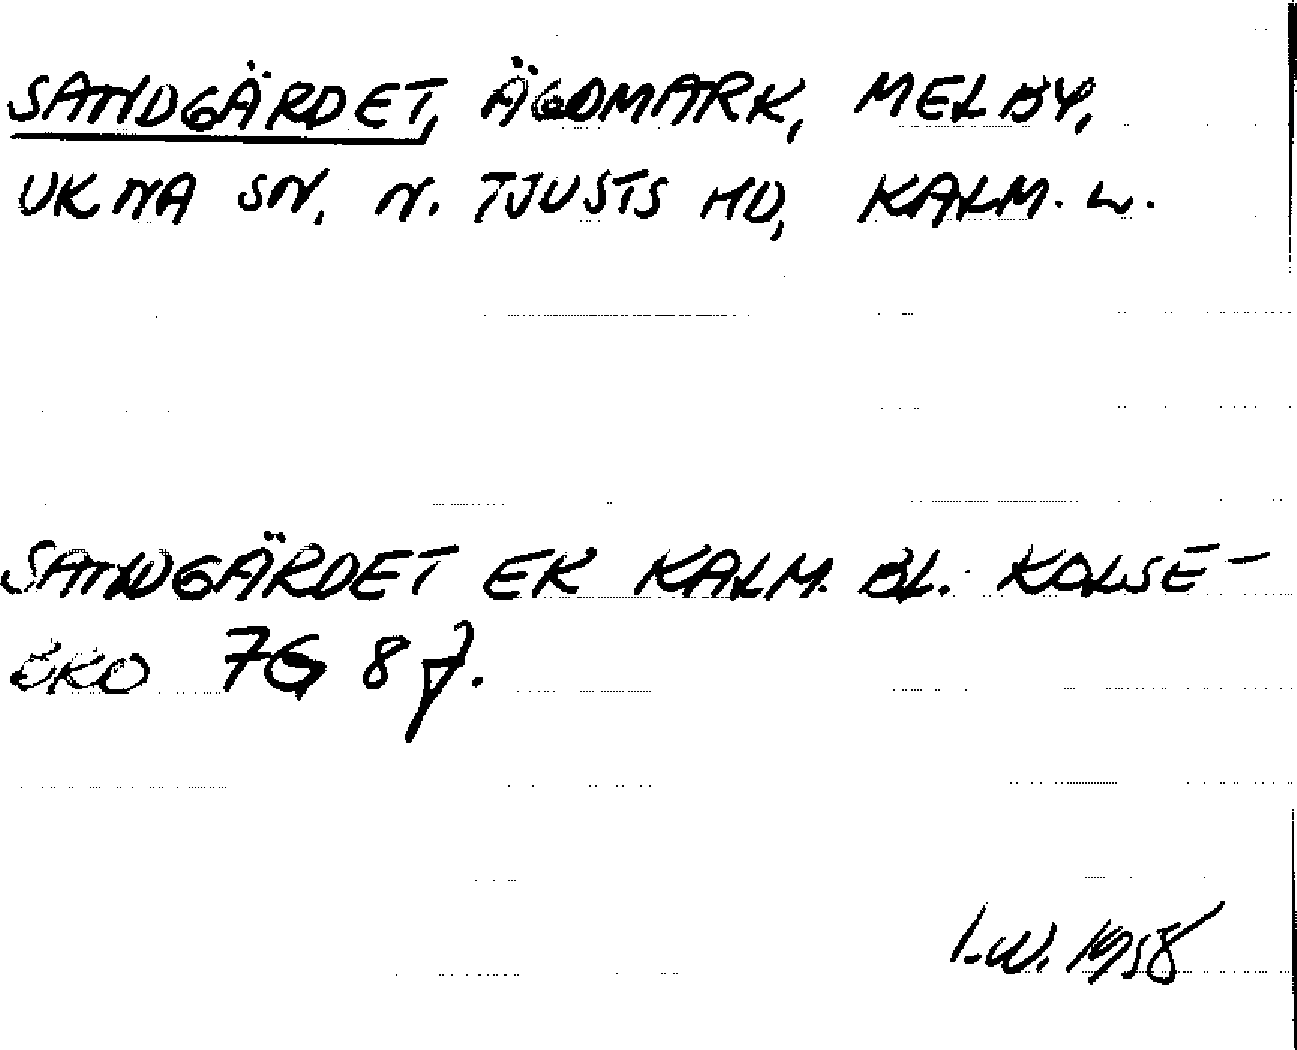 SANDGÄRDET, ÄGOMARK, MELBY,
UKNA SN. N. TJUSTS HD, KALM. L.
SANDGÄRDET EK KALM. BL. KOLSE-
BRO 7G 8f.
I.W. 1958